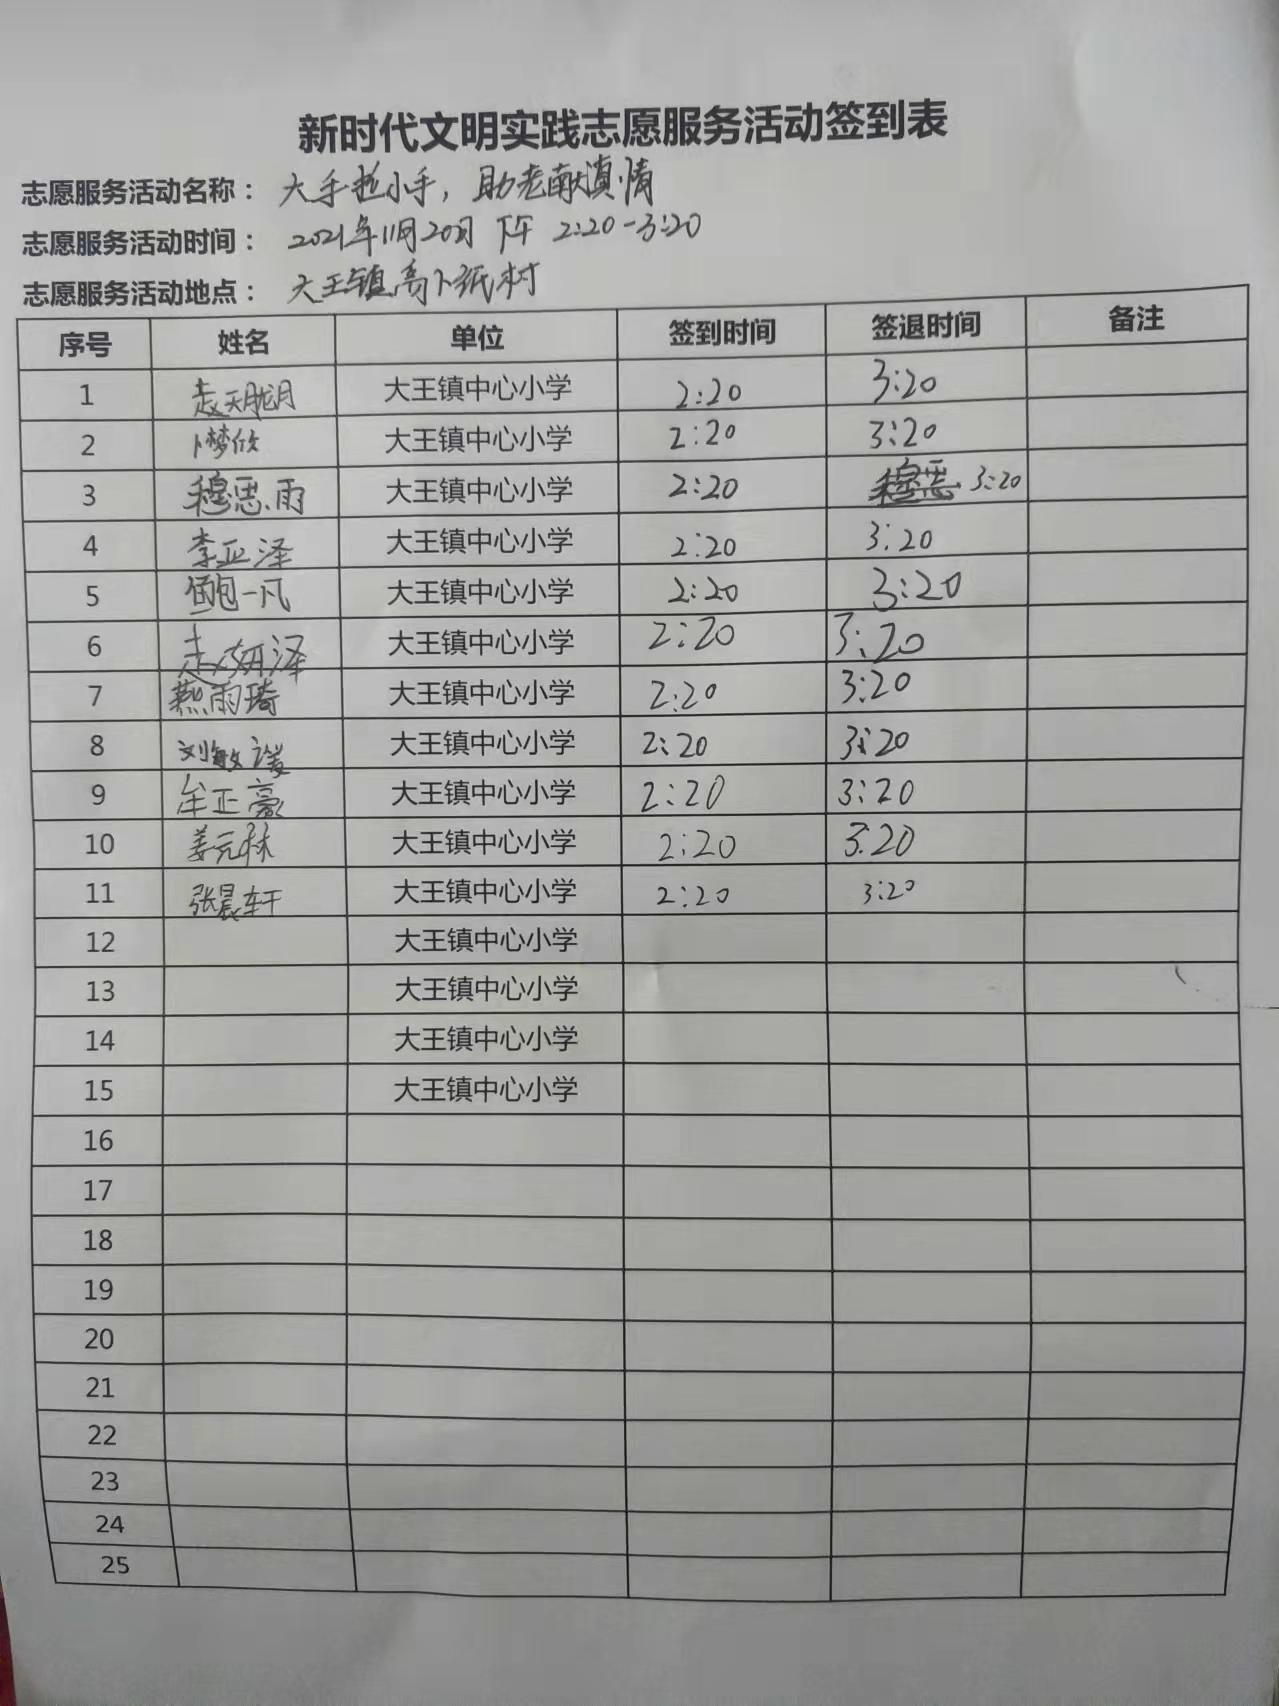 新时代文明实践志愿服务活动签到表
志愿服务活动名称： 大手拉小手，助老献真情
志愿服务活动时间： 2021年11月20日 下午 2:20-3:20
志愿服务活动地点： 大王镇高卜纸村
序号 姓名 单位 签到时间 签退时间 备注
1 大王镇中心小学 2:20 3:20
2 卜梦欣 大王镇中心小学 2:20 3:20
3 穆思雨 大王镇中心小学 2:20 3:20
4 李正泽 大王镇中心小学 2:20 3:20
5 鲍一凡 大王镇中心小学 2:20 3:20
6 赵妍泽 大王镇中心小学 2:20 3:20
7 燕雨琦 大王镇中心小学 2:20 3:20
8 刘敏 大王镇中心小学 2:20 3:20
9 牟正豪 大王镇中心小学 2:20 3:20
10 姜元林 大王镇中心小学 2:20 3:20
11 张晨轩 大王镇中心小学 2:20 3:20
12 大王镇中心小学
13 大王镇中心小学
14 大王镇中心小学
15 大王镇中心小学
16
17
18
19
20
21
22
23
24
25